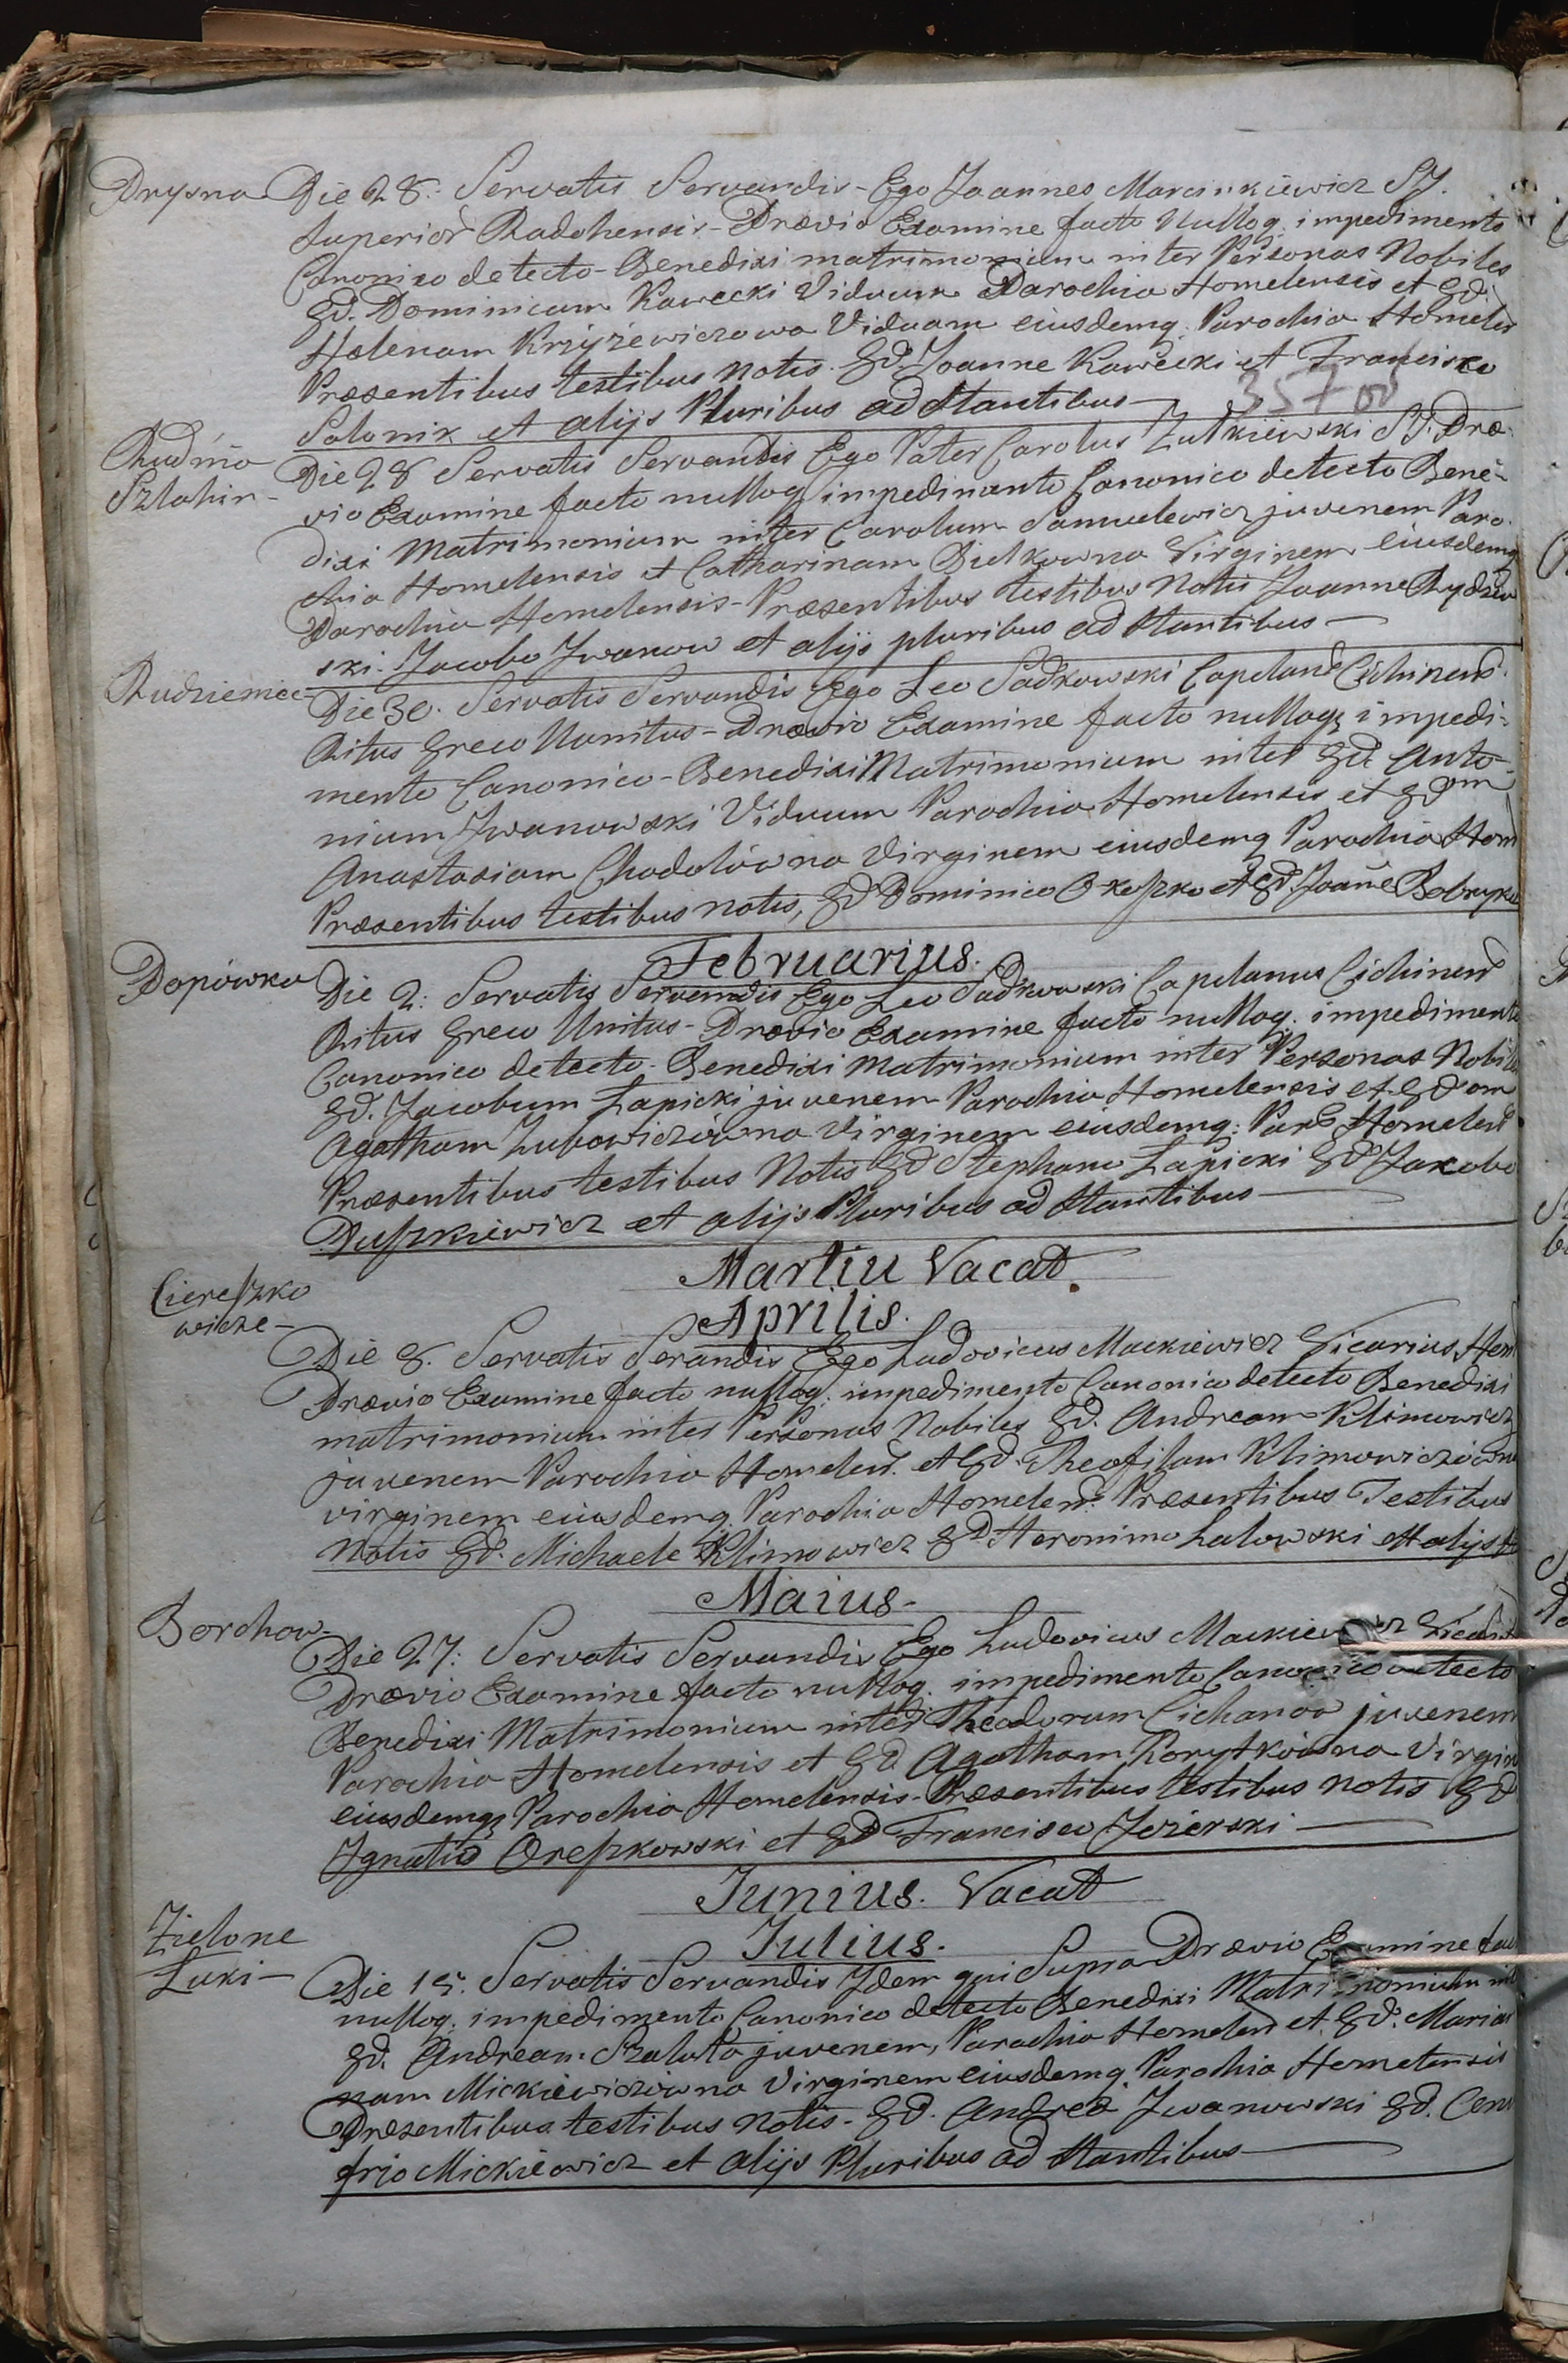 Prysna Die 28. Servatis Servandis - Ego Joannes Marcinkiewicz SJ.
Superior Radohensis - Prævio Examine facto Nulloq. impedimento
Canonico detecto - Benedixi matrimonium inter Personas Nobiles
Gd. Dominicum Kawecki Viduum Parochia Homelensis et Gd.
Helenam Krzyżewiczowa Viduam eiusdemq. Parochia Homelen
Præsentibus testibus Notis. Gd. Joanne Kawecki et Francisco
35700
Solonik et alijs Pluribus ad Stantibus
Rudnia
Szlahin-
Die 28 Servatis Servandis Ego Pater Carolus Zulkiewski SJ. Præ-
vio Examine facto nulloq impedimento Canonico detecto Bene-
dixi Matrimonium inter Carolum Samuelewicz juvenem Paro-
chia Homelensis et Catharinam Bielkowna Virginem eiusdemq
Parochia Homelensis - Præsentibus testibus Notis Joanne Rydzew
ski. Jacobo Jwanow et alijs pluribus ad Stantibus
Rudziemiec-
Die 30. Servatis Servandis Ego Leo Sadkowski Capelans Cichinens.
Ritus Greco Unnitus - Prævio Examine facto nulloq impedi-
mento Canonico - Benedixi Matrimonium inter Gd. Anto-
nium Jwanowski Viduum Parochia Homelensis et Gdm
Anastasiam Chodolówna Virginem eiusdemq Parochia Hom
Præsentibus testibus notis, Gd Dominico et Gd. Joañe
Februarius.
Popówka
Die 2: Servatis Servendis Ego Leo Sadkowski Capelanus Cichinens
Ritus Greco Unitus - Prævio Examine facto nulloq. impedimento
Canonico detecto - Benedixi Matrimonium inter Personas Nobiles
Gd. Jacobum Łapicki juvenem Parochia Homelensis et Gdam
Agatham Zubowiczówna Virginem eiusdemq: Paro Homelens
Præsentibus testibus Notis Gd Stephano Łapicki Gd Jakobo
Duszkiewicz et alijs Pluribus ad Stantibus
Martiu Vacat.
Aprilis.
Ciereszko
wicze-
Die 8. Servatis Serandis Ego Ludovicus Mackiewicz Vicarius Hom
Prævio Examine facto nulloq. impedimento Canonico detecto Benedixi
matrimonium inter Personas Nobiles Gd. Andream Klimowicz
juvenem Parochia Homelens. et Gd. Theofilam Klimowiczówna
virginem eiusdemq. Parochia Homelens. Præsentibus Testibus
Notis Gd. Michaele Klimowicz Gd Heronimo Lalowski et alijs
Maius-
Borchow-
Die 27: Servatis Servandis Ego Ludovicus Mackiewicz
Prævio Examine facto nulloq. impedimento Canonico detecto
Benedixi Matrimonium inter Theodorum Cichanow juvenem
Parochia Homelensis et Gd. Agatham Korytkówna Virgin
eiusdemq Parochia Homelensis - Præsentibus testibus notis Gd
Jgnatio Oreszkowski et Gd Francisco Jezierski
Junius. Vacat
Julius.
Zielone
Łuki-
Die 15. Servatis Servandis Jdem qui Supra Prævio Examine fac
nulloq. impedimento Canonico detecto Benedixi Matrimonium int
Gd. Andream Szaluta juvenem, Parochia Homelens et Gd. Marian
nam Mickiewiczówna Virginem eiusdemq Parochia Homelensis
Præsentibus testibus notis - Gd. Andrea Jwanowski Gd.
Mickiewicz et alijs Pluribus ad Stantibus